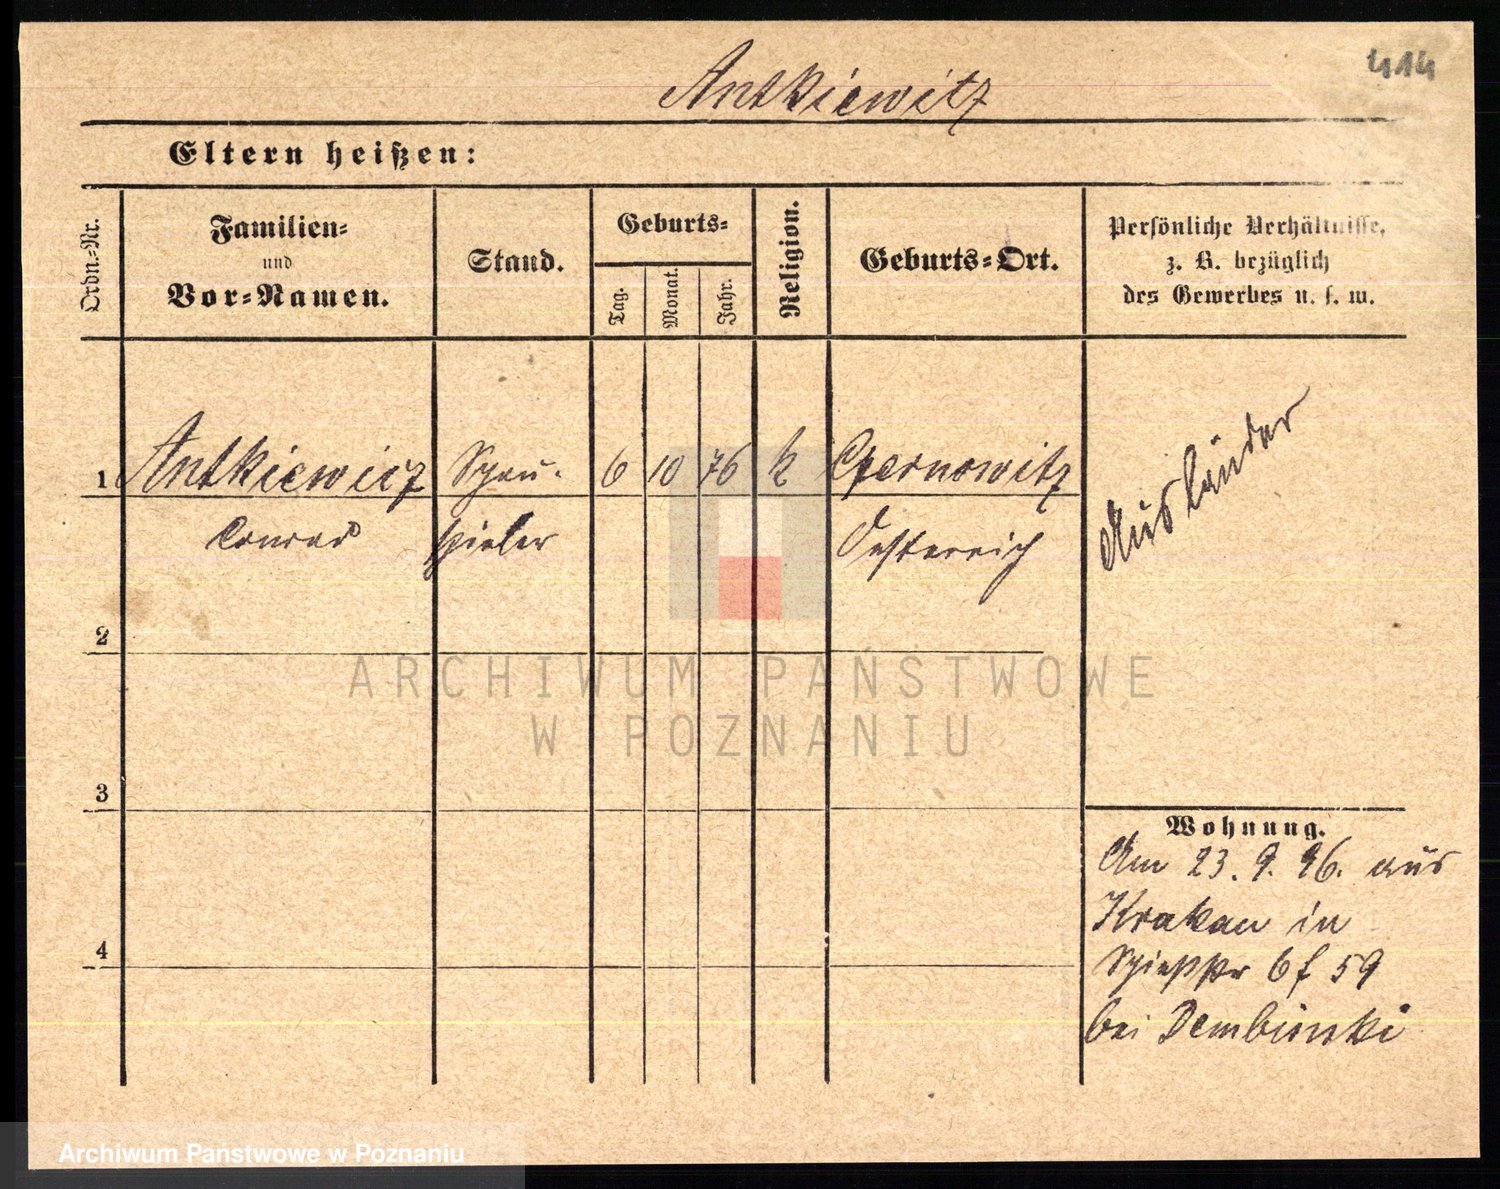 Antkiewitz
414
Eltern heißen:
Ordn.-Nr.
Familien-
und
Vor-Namen.
Stand.
Geburts-
Tag.
Monat.
Jahr.
Religion.
Geburts-Ort.
Persönliche Verhältnisse,
z. B. bezüglich
des Gewerbes u. s. w.
1 Antkiewicz Schau- 6 10 76 k Czernowitz
Conrad spieler Oesterreich
Ausländer
2
3
4
Wohnung.
Am 23. 9. 96. aus
Krakau in
bei Dembinski
ARCHIWUM PAŃSTWOWE
W POZNANIU
Archiwum Państwowe w Poznaniu